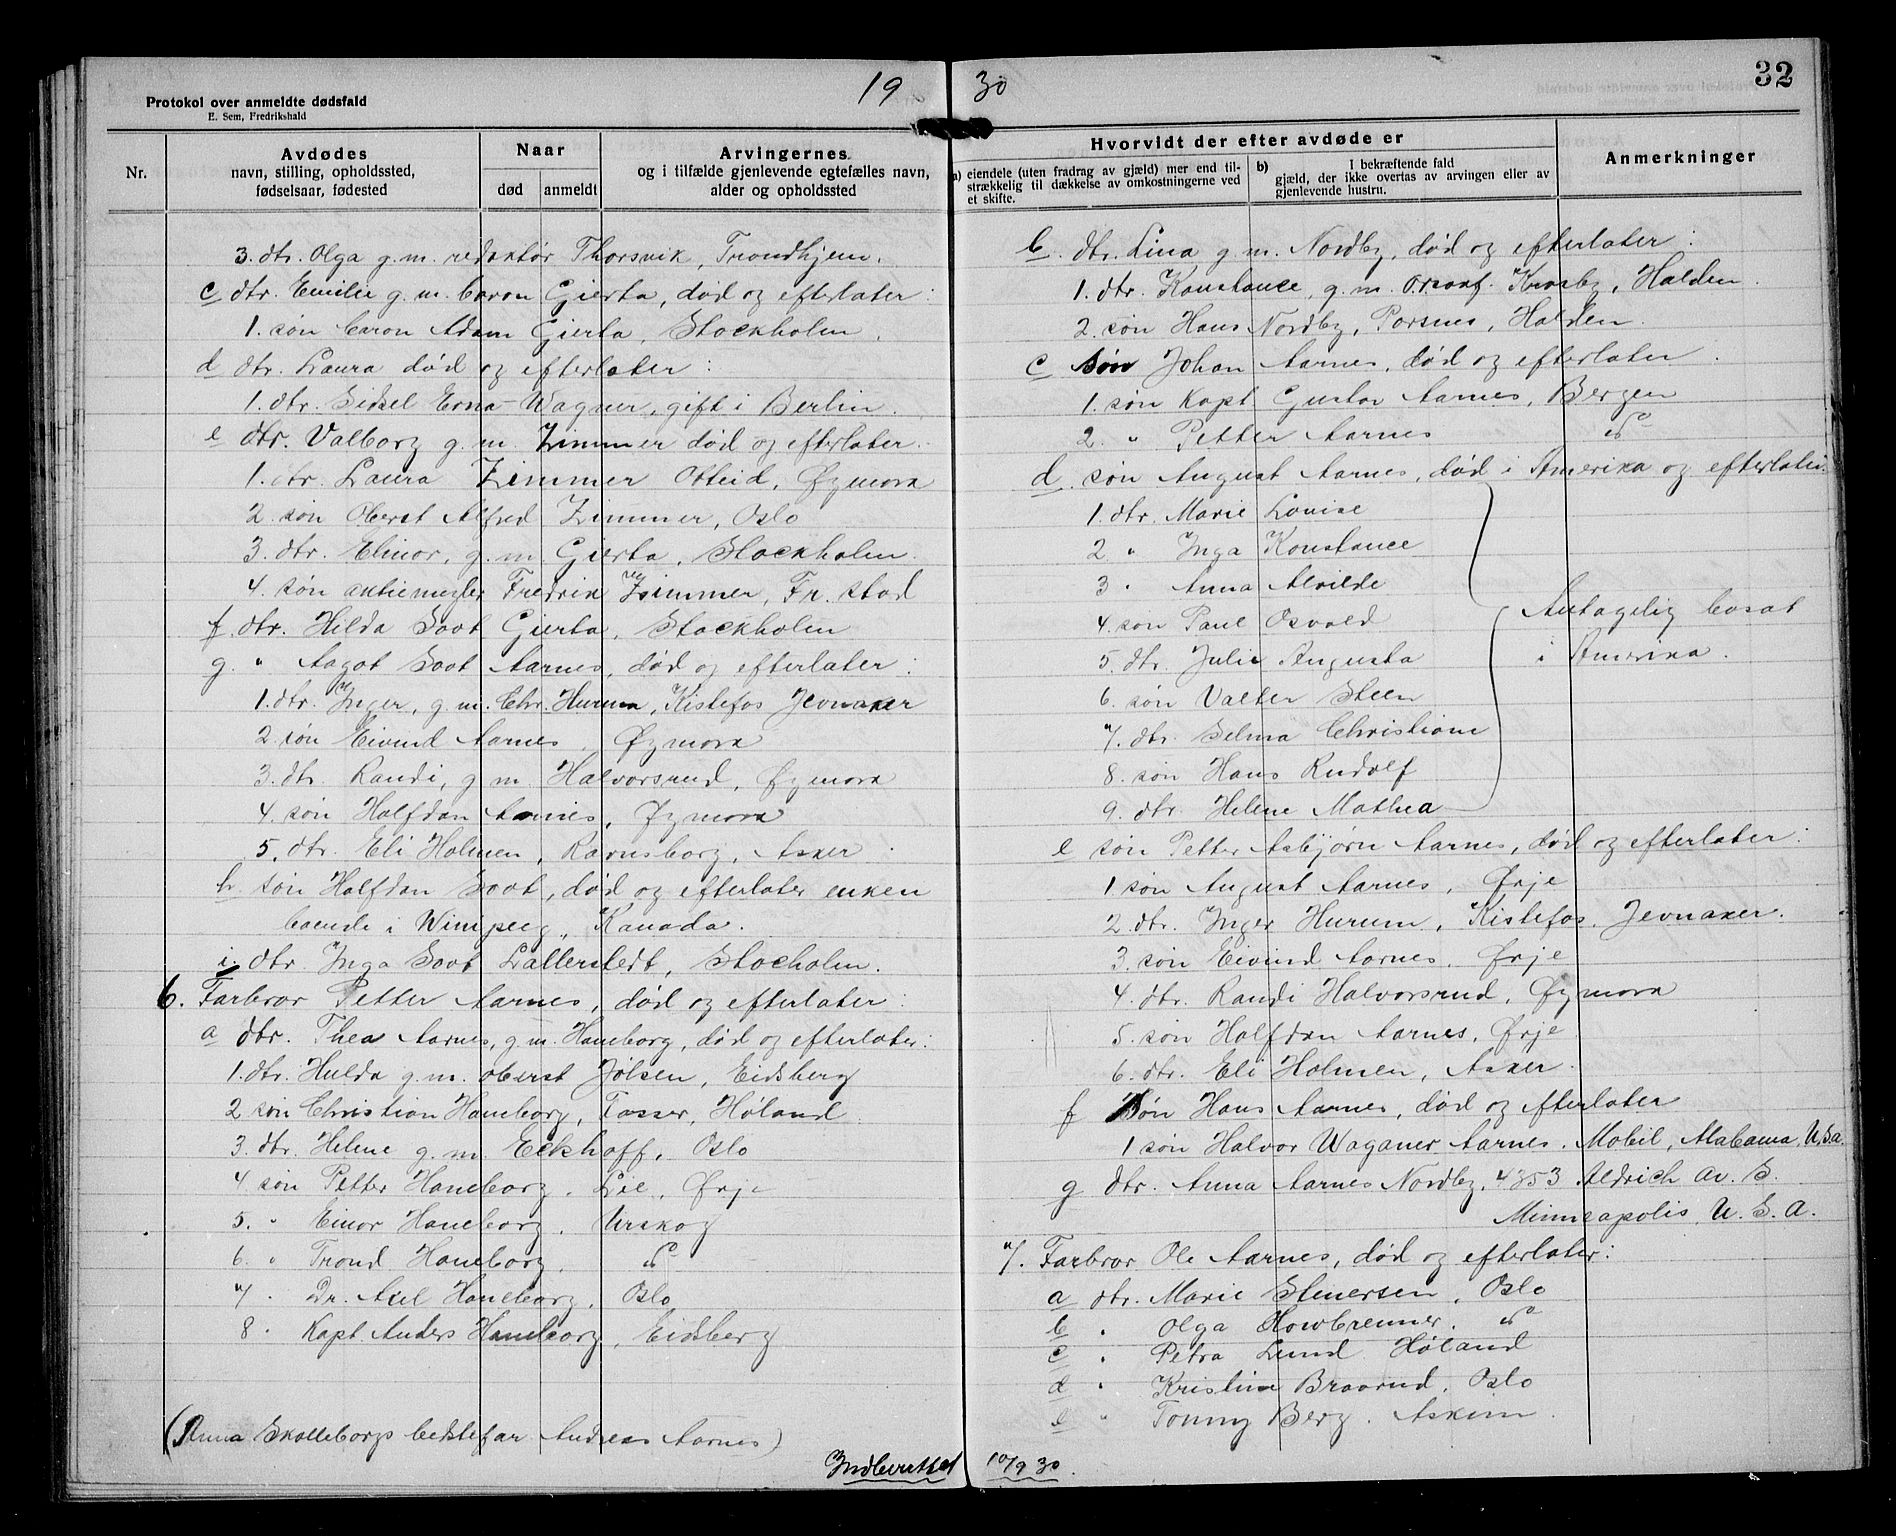 19 30
32
Protokol over anmeldte dødsfald
E. Sem, Fredrikshald
Nr.
Avdødes
navn, stilling, opholdssted,
fødselsaar, fødested
Naar
død
anmeldt
Arvingernes
og i tilfælde gjenlevende egtefælles navn,
alder og opholdssted
Hvorvidt der efter avdøde er
a) eiendele (uten fradrag av gjæld) mer end til-
strækkelig til dækkelse av omkostningerne ved
et skifte.
b) I bekræftende fald
gjæld, der ikke overtas av arvingen eller av
gjenlevende hustru.
Anmerkninger
3. dtr. Olga g.m. redaktør Thorsvik, Trondhjem.
c dtr. Emilie g.m. baron Gierta, død og efterlater:
1. søn baron Adam Gierta, Stockholm.
d dtr. Laura død og efterlater:
1. dtr. Sidsel Erna Wagner, gift i Berlin.
e dtr. Valborg g.m. Zimmer død og efterlater.
1. dtr. Laura Zimmer Otteid, Øymark
2. søn Oberst Alfred Zimmer, Oslo
3. dtr. Elinor, g.m. Gierta, Stockholm.
4. søn aktiemegler Fredrik Zimmer, Fr.stad
f. dtr. Hilda Soot Gierta, Stockholm
g. " Aagot Soot Aarnes, død og efterlater:
1. dtr. Inger, g.m. Chr. Hurum, Kistefos Jevnaker
2. søn Eivind Aarnes, Øymark
3. dtr. Randi, g.m. Halvorsrud, Øymark
4. søn Halfdan Aarnes, Øymark
5. dtr. Eli Holmen, Ravnsborg, Asker
h. søn Halfdan Soot, død og efterlater enken
boende i Winipeg, Kanada.
i. dtr. Inga Soot Lallerstedt, Stocholm.
6. Farbror Petter Aarnes, død og efterlater:
a dtr. Thea Aarnes, g.m. Haneborg, død og efterlater:
1. dtr. Hulda g.m. oberst Jølsen, Eidsberg
2 søn Christian Haneborg, Tosser, Høland
3. dtr. Helene g.m. Eckhoff, Oslo
4. søn Petter Haneborg, Lie, Ørje
5. " Einar Haneborg, Urskog
6. " Trond Haneborg, do
7 " Dr. Axel Haneborg, Oslo
8 " Kapt Anders Haneborg, Eidsberg
(Anna Skolleborgs bedstefar Andreas Aarnes)
Indberettet 10/9 30.
b. dtr. Lina g.m. Nordby, død og efterlater:
1. dtr. Konstance, g.m. Krosby, Halden.
2. søn Hans Nordby, Porsnes, Halden.
c søn Johan Aarnes, død og efterlater.
1. søn Kapt Gustav Aarnes, Bergen
2. " Petter Aarnes do
d. søn August Aarnes, død i Amerika og efterlater.
1. dtr. Marie Louise
2 " Inga Konstance
3 " Anna Alvilde
4. søn Paul Osvald
5. dtr. Julie Augusta
6. søn Valter Steen
7. dtr. Selma Christiane
8. søn Hans Rudolf
9. dtr. Helene Mathea
Antagelig bosat
i Amerika.
e søn Petter Asbjørn Aarnes, død og efterlater:
1 søn August Aarnes, Ørje
2. dtr. Inger Hurum, Kistefos, Jevnaker.
3. søn Eivind Aarnes, Ørje
4. dtr. Randi Halvorsrud, Øymark
5. søn Halfdan Aarnes, Ørje
6. dtr. Eli Holmen, Asker.
f Søn Hans Aarnes, død og efterlater
1 søn Halvor Waganer Aarnes, Mobil, Alabama, U.S.a.
g dtr. Anna Aarnes Nordby, 4353 Aldrich Av. S.
Minneapolis, U.S.A.
7. Farbror Ole Aarnes, død og efterlater:
a dtr. Marie Stenersen, Oslo
b " Olga do
c " Petra Lund Høland
d " Kristine Braarud, Oslo
e " Tonny Berg. Askim.